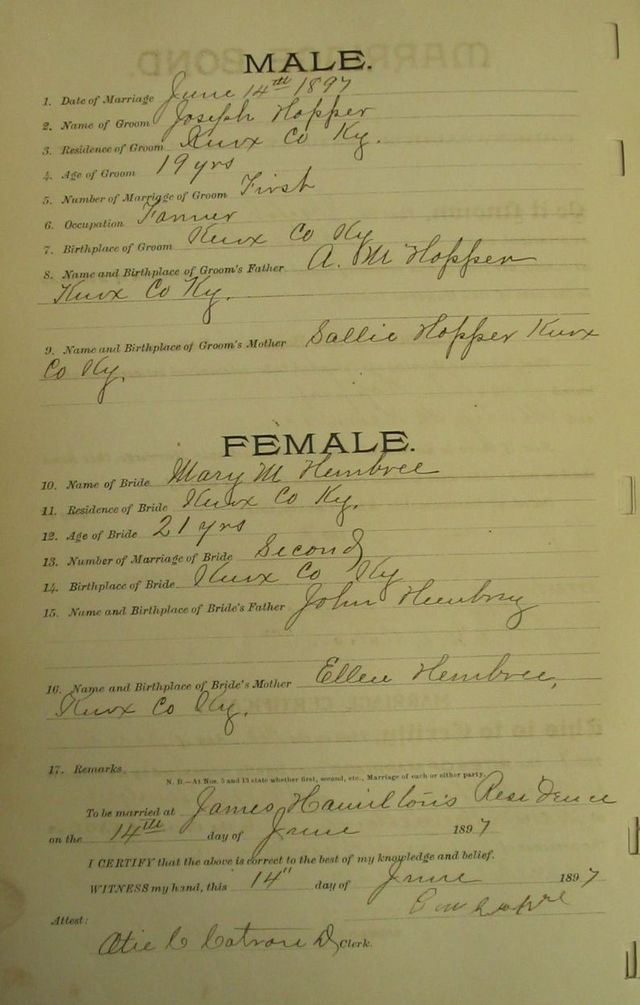 MALE.
1. Date of Marriage June 14th 1897
2. Name of Groom Joseph Hopper
3. Residence of Groom Knox Co Ky.
4. Age of Groom 19 yrs
5. Number of Marriage of Groom First
6. Occupation Farmer
7. Birthplace of Groom Knox Co Ky
8. Name and Birthplace of Groom's Father A. M Hopper
Knox Co Ky.
9. Name and Birthplace of Groom's Mother Sallie Hopper Knox
Co Ky.
FEMALE.
10. Name of Bride Mary M Hembree
11. Residence of Bride Knox Co Ky.
12. Age of Bride 21 yrs
13. Number of Marriage of Bride Second
14. Birthplace of Bride Knox Co Ky
15. Name and Birthplace of Bride's Father John Hembry
16. Name and Birthplace of Bride's Mother Ellen Hembree,
Knox Co Ky.
17. Remarks
N. B.—At Nos. 5 and 13 state whether first, second, etc., Marriage of each or either party.
To be married at James Hamilton's Residence
on the 14th day of June 1897
I CERTIFY that the above is correct to the best of my knowledge and belief.
WITNESS my hand, this 14" day of June 1897
Attest:
Otie C Catron D Clerk.